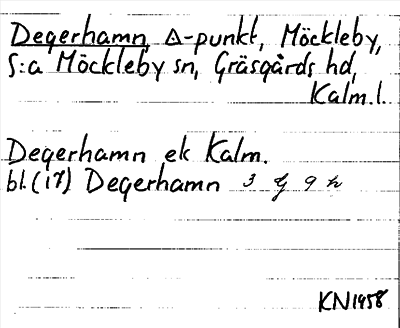 Degerhamn, Δ-punkt, Möckleby,
S:a Möckleby sn, Gräsgårds hd,
Kalm. l.
Degerhamn ek Kalm.
bl. (17) Degerhamn 3 G 9 h
KN1958